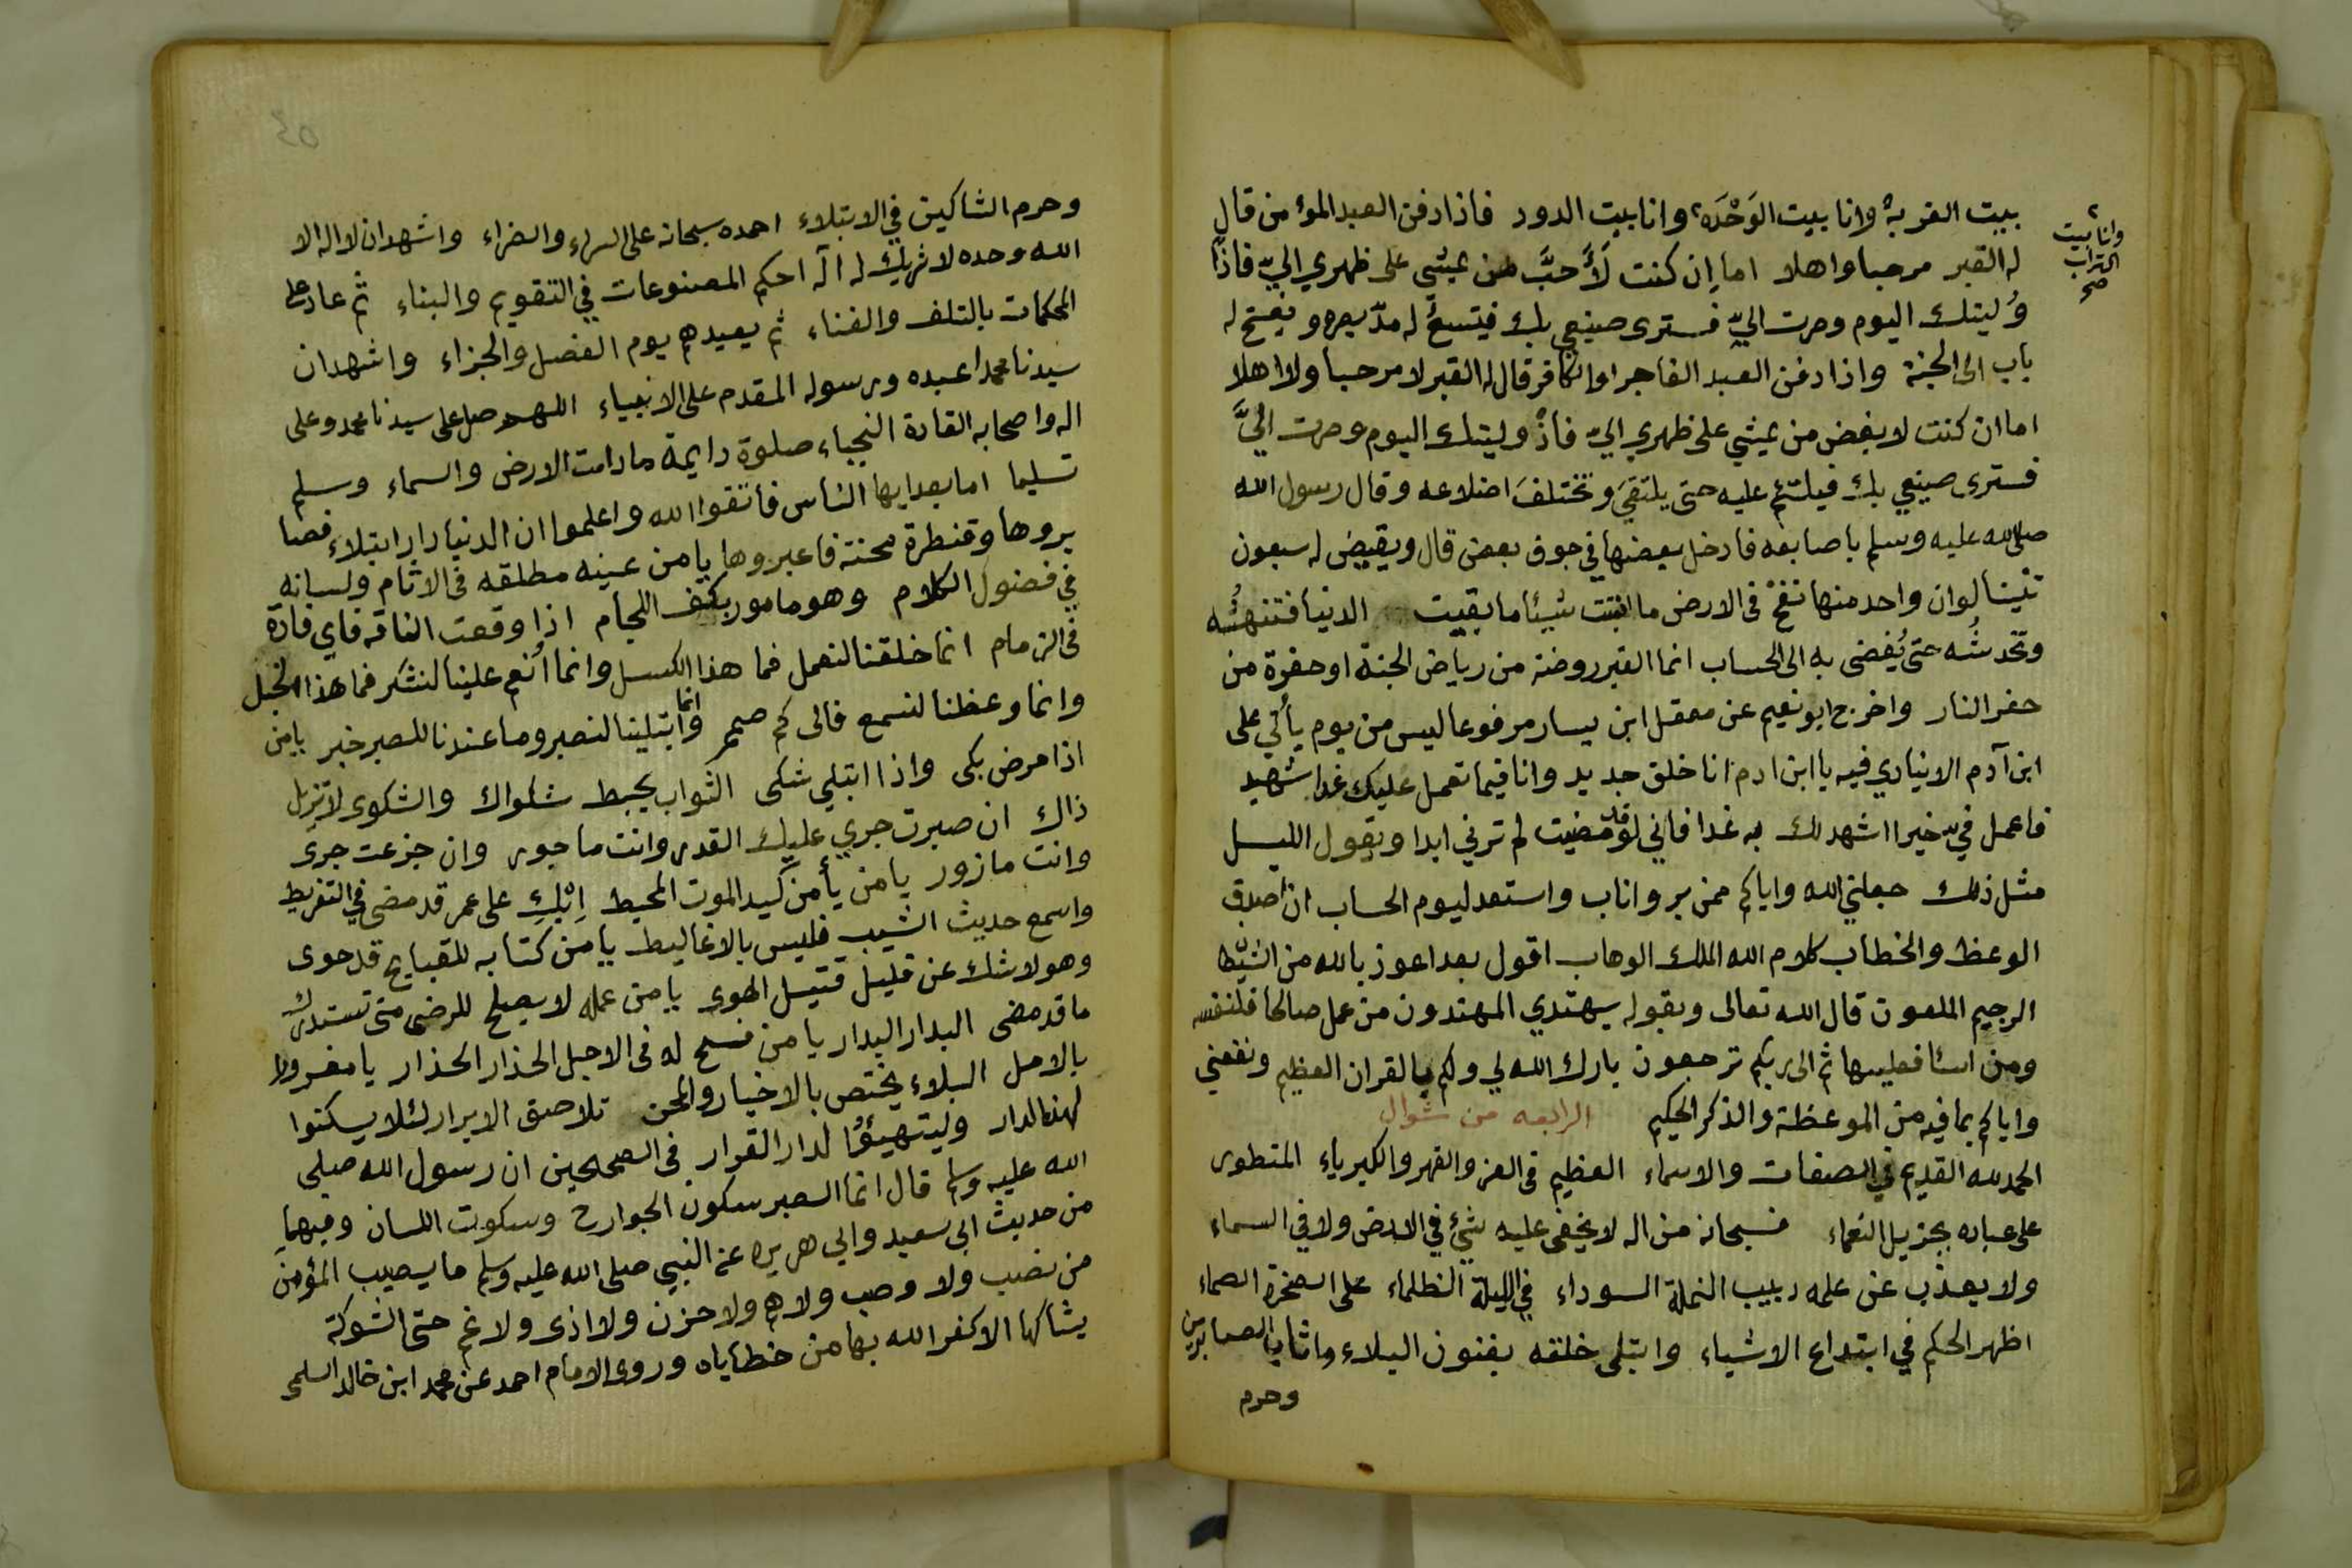 بيت الغربة وانا بيت الوَحْدَه، وانا بيت الدود فاذا دفن العبد المؤمن قال
وانا بيت
التراب
صح
له القبر مرحبا واهلا اما إن كنت لَأَحبَّ من يمشي على ظهري اليّ فاذًا
وُليتك اليوم وصرت اليّ فسترى صنيعي بك فيتسعُ له مدّ بصره ويفتح له
باب الى الجنة واذا دفن العبد الفاجر او الكافر قال له القبر لا مرحبا ولا اهلا
اما ان كنت لابغض من يمشي على ظهري اليّ فاذً وليتك اليوم وصرت اليَّ
فسترى صنيعي بك فيلتئم عليه حتى يلتقيَ وتختلفَ اضلاعه وقال رسول الله
صلى الله عليه وسلم باصابعه فادخل بعضها في جوف بعض قال ويقيض له سبعون
تنينا لو ان واحد منها نفخْ فى الارض ما انبتت شيئا ما بقيت الدنيا فتنهشُه
وتخدشُه حتى يُفضى به الى الحساب انما القبر روضة من رياض الجنة او حفرة من
حفر النار واخرج ابو نعيم عن معقل ابن يسار مرفوعا ليس من يوم يأتي على
ابن آدم الا ينادي فيه يا ابن ادم انا خلق جديد وانا فيما تعمل عليك غدا شهيد
فاعمل فيّ خيرا اشهد لك به غدا فاني لو قد مضيت لم ترني ابدا ويقول الليل
مثل ذلك جعلني الله واياكم ممن بر واناب واستعد ليوم الحساب ان اصدق
الوعظ والخطاب كلام الله الملك الوهاب اقول بعد اعوذ بالله من الشيطا
الرجيم الملعون قال الله تعالى وبقوله يهتدي المهتدون من عمل صالحا فلنفسه
ومن اسئا فعليها ثم الى ربكم ترجعون بارك الله لي ولكم بالقران العظيم ونفعني
واياكم بما فيه من الموعظة والذكر الحكيم الرابعه من شوال
الحمد لله القديم في الصفات والاسماء العظيم فى العز والقهر والكبرياء المتطول
على عباده بجزيل النعماء فسبحانه من اله لا يخفى عليه شئ في الارض ولا في السماء
ولا يعذب عن علمه دبيب النملة السوداء في الليلة الظلماء على الصخرة الصماء
اظهر الحكم في ابتداع الاشياء وابتلى خلقه بفنون البلاء واثاب الصابرين
وحرم
وحرم الشاكين في الابتلاء احمده سبحانه على السراء والضراء واشهد ان لا اله الا
الله وحده لا شريك له اله احكم المصنوعات في التقويم والبناء ثم عاد على
المحكمات بالتلف والفناء ثم يعيدهم يوم الفصل والجزاء واشهد ان
سيدنا محمدا عبده ورسوله المقدم على الانبياء اللهم صل على سيدنا محمد وعلى
اله واصحابه القادة النجباء صلوة دايمة مادامت الارض والسماء وسلم
تسليما اما بعد ايها الناس فاتقوا الله واعلموا ان الدنيا دار ابتلاء فصا
بروها وقنطرة محنة فاعبروها يا من عينه مطلقه فى الاثام ولسانه
في فضول الكلام وهو مامور بكف اللجام اذا وقعت الناقه فاي فادة
فى الزمام انما خلقنا لنعمل فما هذا الكسل وانما أنعم علينا لنشكر فما هذا الخجل
وانما وعظنا لنسمع فالى كم صمم وانما ابتلينا لنصبر وما عندنا للصبر خبر يا من
اذا مرض بكى واذا ابتلي شكى الثواب يحبط شكواك والشكوى لا تزيل
ذاك ان صبرت جرى عليك القدر وانت ماجور وان جزعت جرى
وانت مازور يا من يأمن كيد الموت المحيط اِبْكِ على عمر قد مضى في التفريط
واسمع حديث الشيب فليس بالاغاليط يا من كتابه للقبايح قد حوى
وهو لا شك عن قليل قتيل الهوى يا من عمله لا يصلح للرضى متى تستدرك
ما قد مضى البدار البدار يا من فسح له فى الاجل الحذار الحذار يا مغرورا
بالامل البلاء يختص بالاخيار والمحن تلاصق الابرار لئلا يسكنوا
لهذه الدار وليتهيؤا لدار القرار فى الصحيحين ان رسول الله صلى
الله عليه وسلم قال انما الصبر سكون الجوارح وسكوت اللسان وفيهما
من حديث ابى سعيد وابي هريره عن النبي صلى الله عليه وسلم ما يصيب المؤمن
من نصب ولا وصب ولا هم ولا حزن ولا اذى ولا غم حتى الشوكة
يشاكها الا كفر الله بها من خطاياه وروى الامام احمد عن محمد ابن خالد السلمى